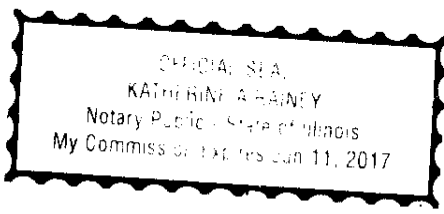 OFFICIAL SEAL
KATHERINE A RAINEY
Notary Public - State of Illinois
My Commission Expires Jun 11, 2017